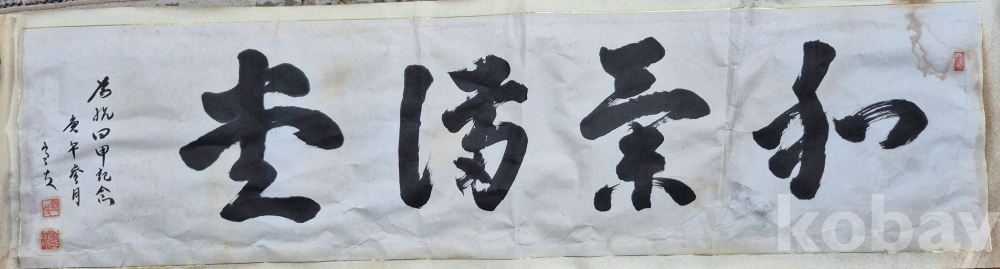 和氣滿堂
為祝回甲紀念
庚午參月
kobay